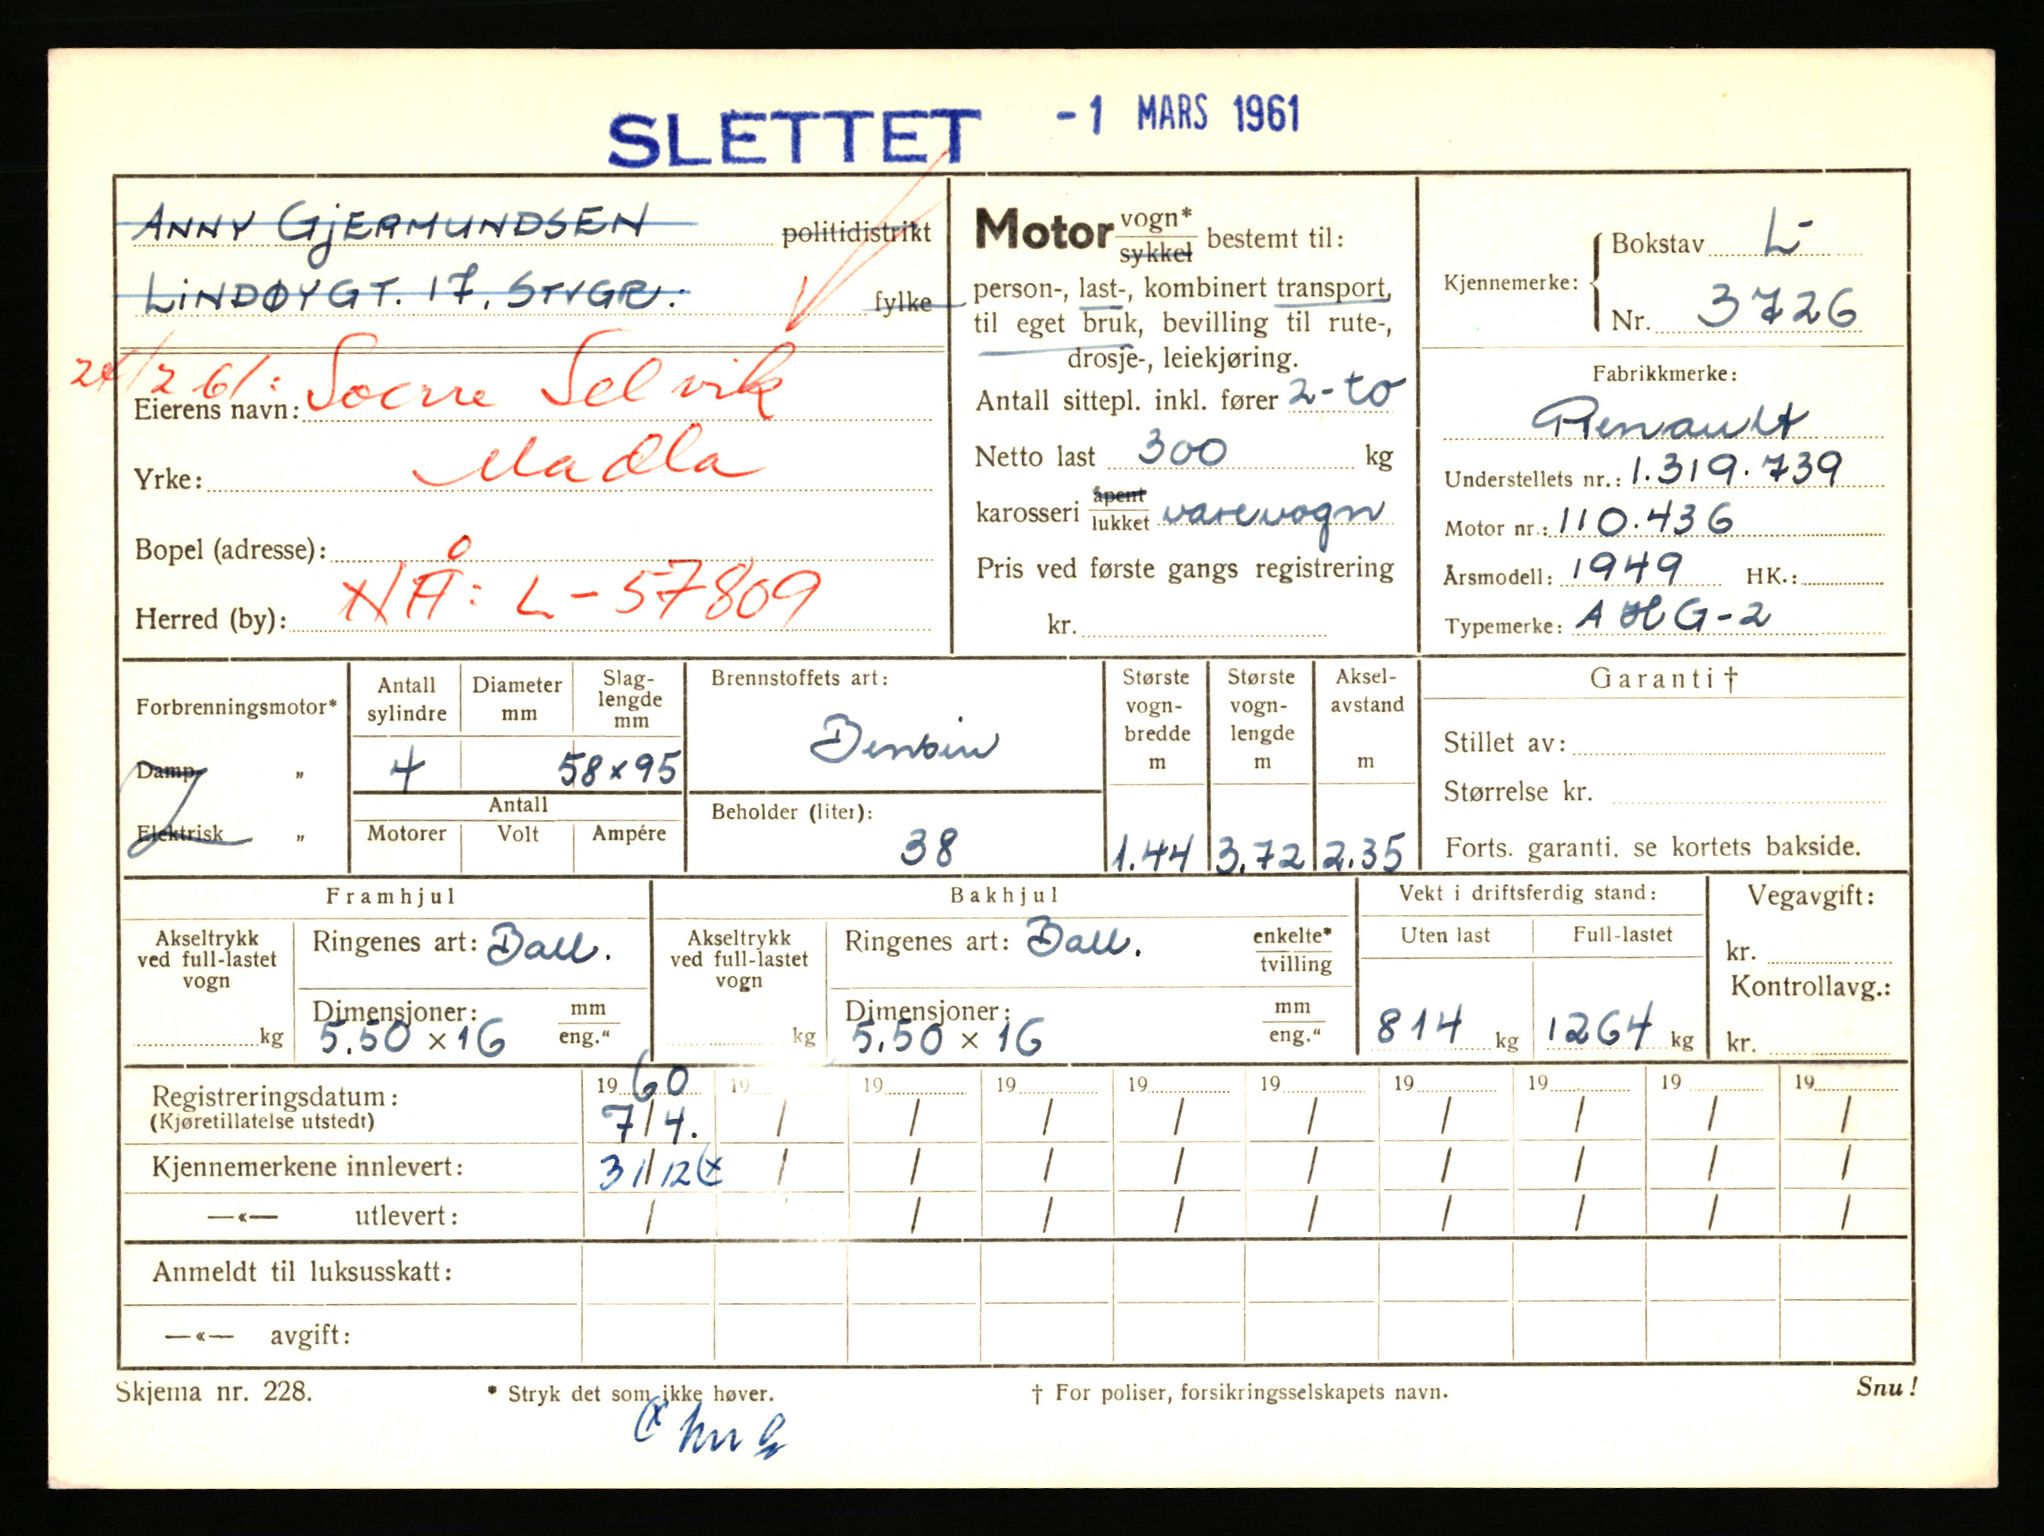 SLETTET -1 MARS 1961
ANNY GJERMUNDSEN politidistrikt
LINDØYGT. 17, STVGR. fylke
24/2 61: Soerre Selvik
Eierens navn:
Madla
Yrke:
Bopel (adresse):
NÅ: L-57809
Herred (by):
Motor vogn* sykkel bestemt til:
person-, last-, kombinert transport,
til eget bruk, bevilling til rute-,
drosje-, leiekjøring.
Antall sittepl. inkl. fører 2-to
Netto last 300 kg
karosseri åpent lukket varevogn
Pris ved første gangs registrering
kr.
Kjennemerke: Bokstav L-
Nr. 3726
Fabrikkmerke:
Renault
Understellets nr.: 1.319.739
Motor nr.: 110.436
Årsmodell: 1949 HK.:
Typemerke: A H G-2
Forbrenningsmotor*
Damp "
Elektrisk "
Antall sylindre
Diameter mm
Slag-
lengde
mm
4 58×95
Antall
Motorer Volt Ampére
Brennstoffets art:
Bensin
Beholder (liter):
38
Største
vogn-
bredde
m
1.44
Største
vogn-
lengde
m
3.72
Aksel-
avstand
m
2.35
Garanti †
Stillet av:
Størrelse kr.
Forts. garanti. se kortets bakside.
Framhjul
Akseltrykk
ved full-lastet
vogn
kg
Ringenes art: Ball.
Dimensjoner: mm eng."
5.50 × 16
Bakhjul
Akseltrykk
ved full-lastet
vogn
kg
Ringenes art: Ball. enkelte* tvilling
Dimensjoner: mm eng."
5.50 × 16
Vekt i driftsferdig stand:
Uten last Full-lastet
814 kg 1264 kg
Vegavgift:
kr.
Kontrollavg.:
kr.
Registreringsdatum: 19 60 19 19 19 19 19 19 19 19 19
(Kjøretillatelse utstedt) 7/4. / / / / / / / / /
Kjennemerkene innlevert: 31/12 (x / / / / / / / / /
—«— utlevert: / / / / / / / / /
Anmeldt til luksusskatt:
—«— avgift:
Skjema nr. 228. * Stryk det som ikke høver. † For poliser, forsikringsselskapets navn. Snu!
(x